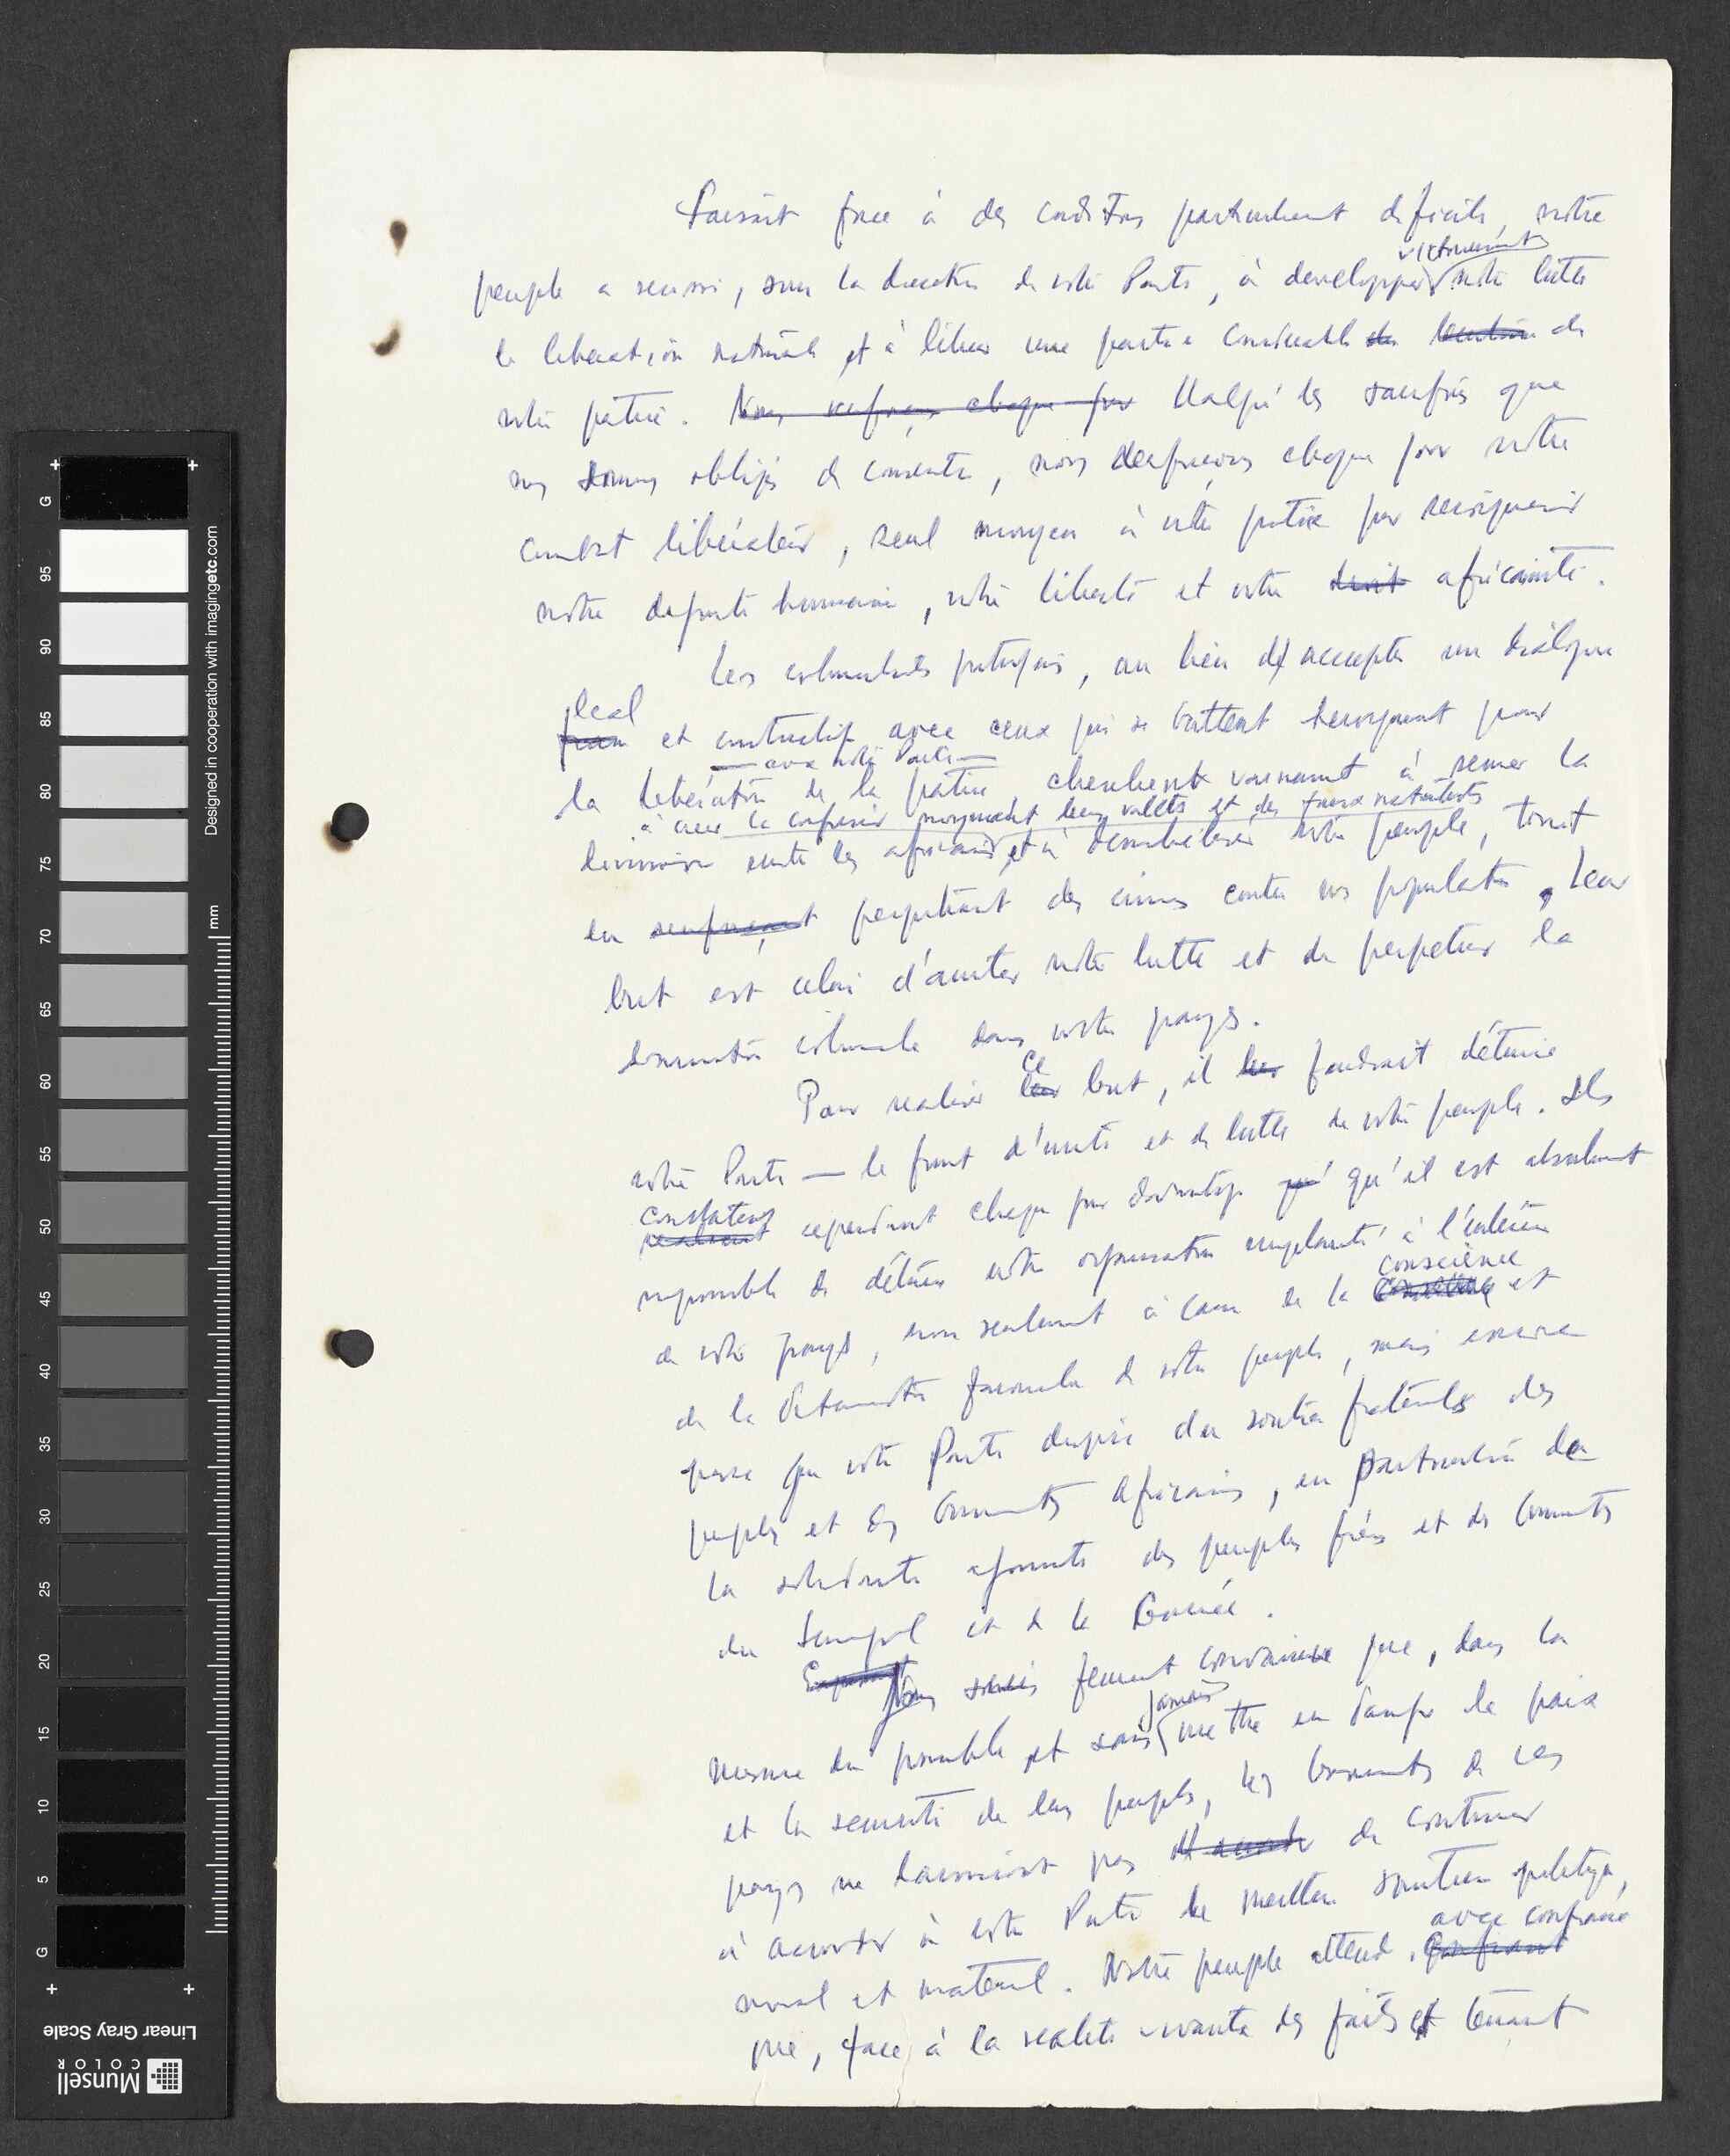 Faisant face à des conditions particulièrement difficiles, notre
victorieusement
peuple a reussi, sous la direction de notre Parti, à developper notre lutte
de liberation nationale et à libérer une partie considerable de
notre patrie. Nous renforçons chaque jour Malgré les sacrifices que
nous sommes obligés de consentir, nous renforçons chaque jour notre
combat libérateur, seul moyen à notre portée pour reconquerir
notre dignité humaine, notre liberté et notre droit africanité.
Les colonialistes portugais, au lieu d'accepter un dialogue
leal
franc et constructif avec ceux qui se battent heroïquement pour
— avec notre Parti —
la libération de la patrie, cherchent vainement à semer la
à creer la confusion moyennant leurs valets et des faux nationalistes
division entre les africains et à demobiliser notre peuple, tout
en renforçant perpetrant des crimes contre nos populations. Leur
but est celui d'arreter notre lutte et de perpetuer la
domination coloniale dans notre pays.
ce
Pour realiser leur but, il leur faudrait détruire
notre Parti — le front d'unité et de lutte de notre peuple. Ils
constatent
realisent cependant chaque jour davantage qu'il est absolument
impossible de détruire notre organisation implantée à l'intérieur
conscience
de notre pays, non seulement à cause de la et
de la determination farouche de notre peuple, mais encore
parce que notre Parti dispose du soutien fraternel des
peuples et des Gouvernements africains, en particulier de
la solidarité agissante des peuples frères et des Gouvernements
du Senegal et de la Guinée.
Nous sommes fermement convaincus que, dans la
jamais
mesure du possible et sans mettre en danger la paix
et la securité de leurs peuples, les Gouvernements de ces
pays ne laisseront pas de continuer
à accorder à notre Parti le meilleur soutien politique,
avec confiance
moral et materiel. Notre peuple attend confiant
que, face à la realité vivante des faits et tenant